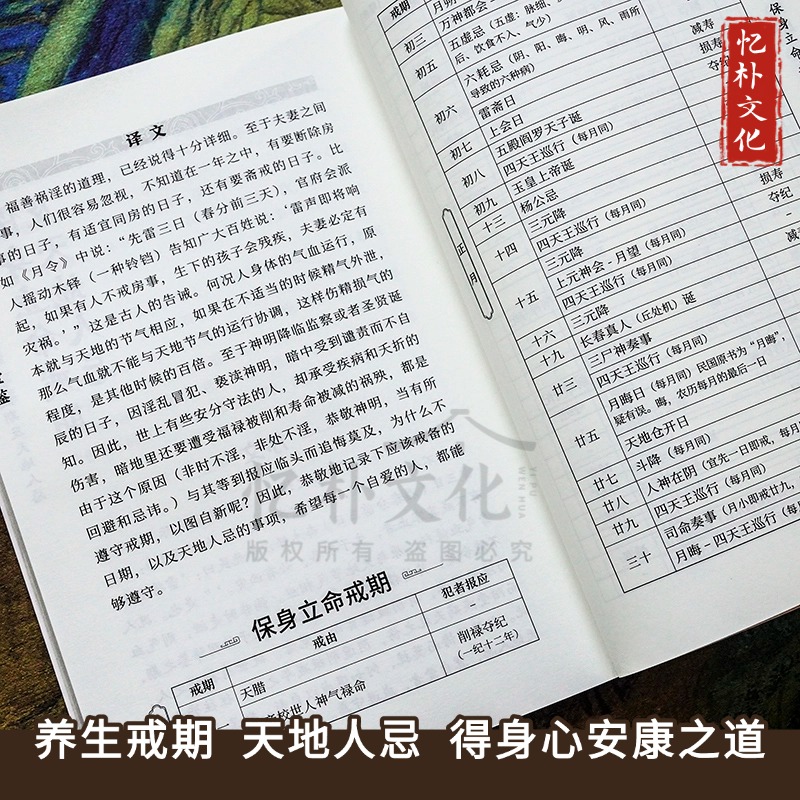 译文
福善祸淫的道理，已经说得十分详细。至于夫妻之间
事，人们很容易忽视，不知道在一年之中，有要断除房
事的日子，有适宜同房的日子，还有要斋戒的日子。比
如《月令》中说：“先雷三日（春分前三天），官府会派
人摇动木铎（一种铃铛）告知广大百姓说：‘雷声即将响
起，如果有人不戒房事，生下的孩子会残疾，夫妻必定有
灾祸。’”这是古人的告诫。何况人身体的气血运行，原
本就与天地的节气相应，如果在不适当的时候精气外泄，
那么气血就不能与天地节气的运行协调，这样伤精损气的
程度，是其他时候的百倍。至于神明降临监察或者圣贤诞
辰的日子，因淫乱冒犯、亵渎神明，暗中受到谴责而不自
知。因此，世上有些安分守法的人，却承受疾病和夭折的
伤害，暗地里还要遭受福禄被削和寿命被减的祸殃，都是
由于这个原因（非时不淫，非处不淫，恭敬神明，当有所
回避和忌讳。）与其等到报应临头而追悔莫及，为什么不
遵守戒期，以图自新呢？因此，恭敬地记录下应该戒备的
日期，以及天地人忌的事项，希望每一个自爱的人，都能
够遵守。
保身立命戒期
戒期 戒由 犯者报应
天腊 -
削禄夺纪
（一纪十二年）
校世人神气禄命
戒期
初三 万神都会
初五 五虚忌（五虚：脉细、
后、饮食不入、气少） 减寿
初六 六耗忌（阴、阳、晦、明、风、雨所
导致的六种病） 损寿
雷斋日
初七 上会日
初八 五殿阎罗天子诞
四天王巡行（每月同）
初九 玉皇上帝诞
十三 杨公忌
十四 三元降
四天王巡行（每月同） 损寿
十五 三元降 夺纪
上元神会-月望（每月同） -
四天王巡行（每月同）
十六 三元降
十九 长春真人（丘处机）诞
廿三 三尸神奏事
四天王巡行（每月同）
廿五 月晦日（每月同）民国原书为“月晦”，
疑有误。晦，农历每月的最后一日
天地仓开日
廿七 斗降（每月同）
廿八 人神在阴（宜先一日即戒，每月
廿九 四天王巡行（每月同）
三十 司命奏事（月小即戒廿九，
月晦-四天王巡行（每
正月
保身立命
忆朴文化
忆朴文化
YIPU
WEN HUA
版权所有 盗图必究
养生戒期 天地人忌 得身心安康之道